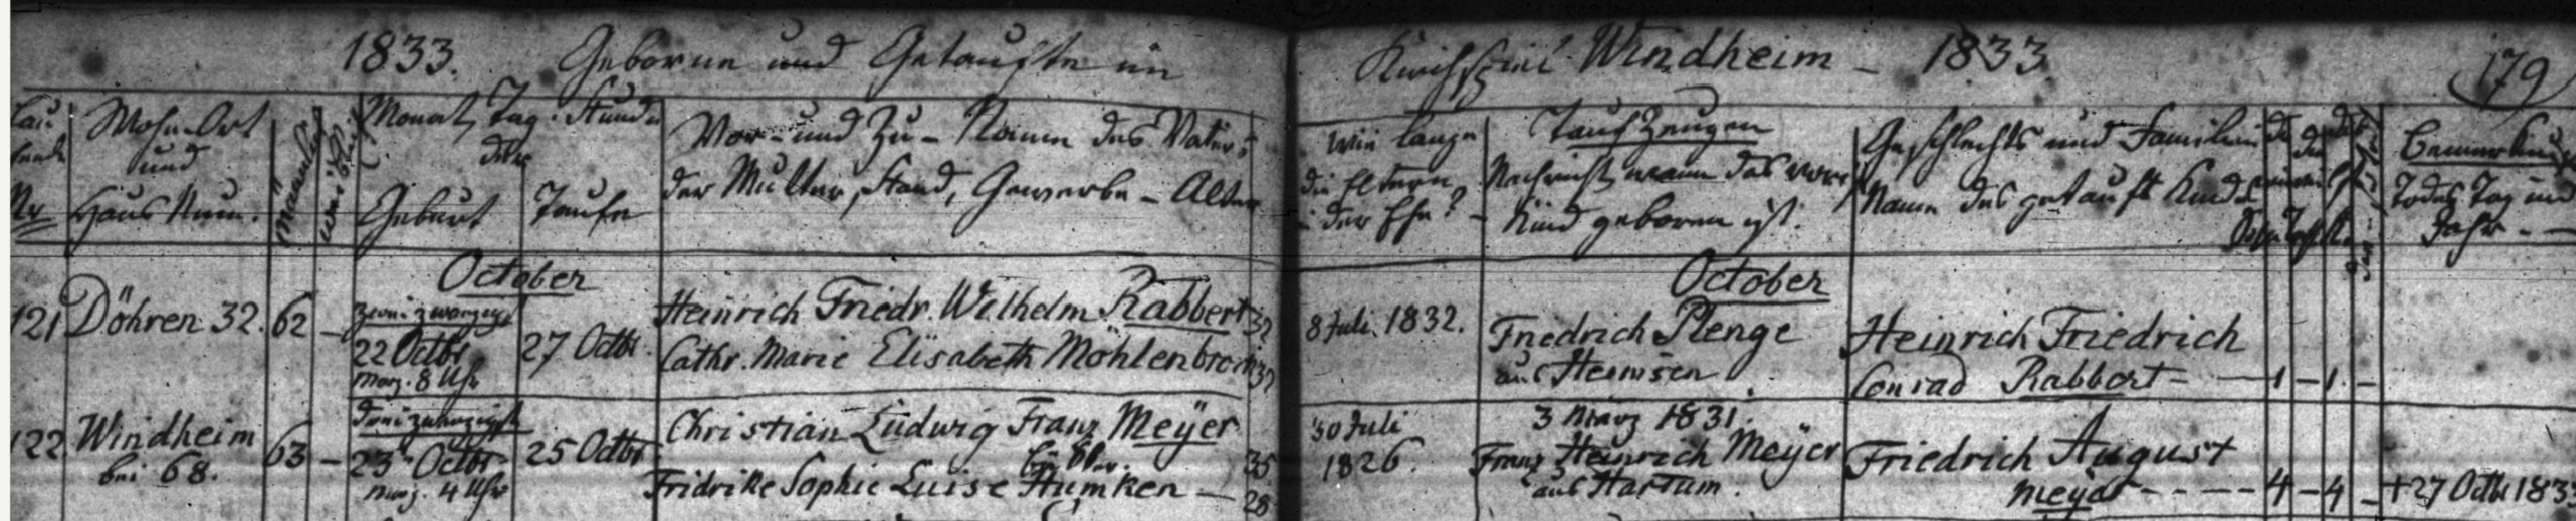 1833. Geborne und Getaufte im Kirchspiel Windheim – 1833. 179
Lau-
fende
Nr
Wohn-Ort
und
Haus Num.
Männlich
weiblich
Monat, Tag. Stunde
der
Geburt
Taufe
Vor- und Zu-Namen des Vaters
der Mutter, Stand, Gewerbe – Alter
Wie lange
die Eltern
in der Ehe?
Taufzeugen
Nachricht wann das vor.
Kind geboren ist.
Geschlechts und Familien
Name des getauft Kindes
Bemerkung
Todes Tag und
Jahr – –
October
October
121
Döhren 32.
62 –
zwei zwanzigst
22 Octbr
Morg. 8 Uhr
27 Octbr.
Heinrich Friedr. Wilhelm Rabbert 32
Cathr. Marie Elisabeth Möhlenbrock 32
8 Juli. 1832.
Friedrich Plenge
aus Heimsen
Heinrich Friedrich
Conrad Rabbert – – 1 – 1. –
122.
Windheim
bei 68.
63 –
drei zwanzigst
23 Octbr
Morg. 4 Uhr
25 Octbr
Christian Ludwig Franz Meÿer
35
Fridrike Sophie Luise Humken – 28
30 Juli
1826.
3 März 1831.
Franz Heinrich Meÿer
aus Hartum.
Friedrich August
Meÿer – – – – 4 – 4 –
+ 27 Octbr 1833